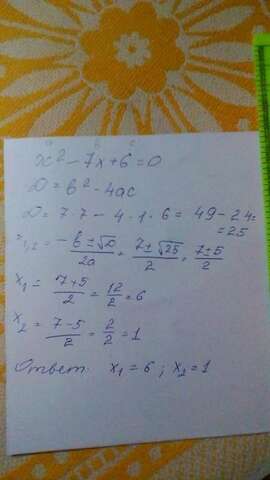 a в c
x² - 7x + 6 = 0
D = в² - 4ac
D = 7·7 - 4·1·6 = 49 - 24 =
= 25
x₁,₂ = -в ± √D / 2a = 7 ± √25 / 2 = 7 ± 5 / 2
x₁ = 7 + 5 / 2 = 12 / 2 = 6
x₂ = 7 - 5 / 2 = 2 / 2 = 1
Ответ: x₁ = 6 ; x₂ = 1